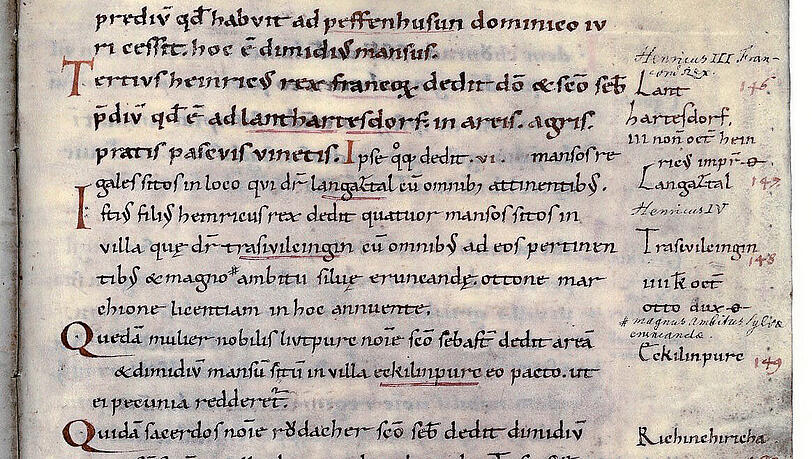 prediū qđ habuit ad peffenhusun dominico iu
ri cessit. hoc ē dimidiꝰ mansus.
Tertius heinricꝰ rex francoꝝ dedit dō & scō seb̄
p̄diū qđ ē ad lanthartesdorf. in areis. agris.
pratis pascuis vinetis. Ipse q̊q̨ dedit .vi. mansos re
gales sitos in loco qui dr̄ langaztal cū omnibꝫ attinentibꝰ.
Istiꝰ filiꝰ heinricus rex dedit quatuor mansos sitos in
villa quę dr̄ trasivileingin cū omnibꝰ ad eos pertinen
tibꝰ & magno# ambitu siluę eruncandę. ottone mar
chione licentiam in hoc annuente.
Quedā mulier nobilis liutpurc noīe scō sebast̄ dedit areā
& dimidiū mansū sitū in villa eckilinpurc eo pacto. ut
ei pecunia redderet̄.
Quidā sacerdos noīe rŏdacher scō seb̄ dedit dimidiū
Henricus III Fran-
corū Rex.
146
Lant
hartesdorf.
III non̄ oct̄ hein
ricꝰ impr̄ ꝋ
Langaztal
147
Henricus IV
Trasivileingin
148
IIII k̄ oct̄
otto dux ꝋ
# magnus ambitus sylvæ
eruncandæ.
Eckilinpurc
149
Richinchiricha